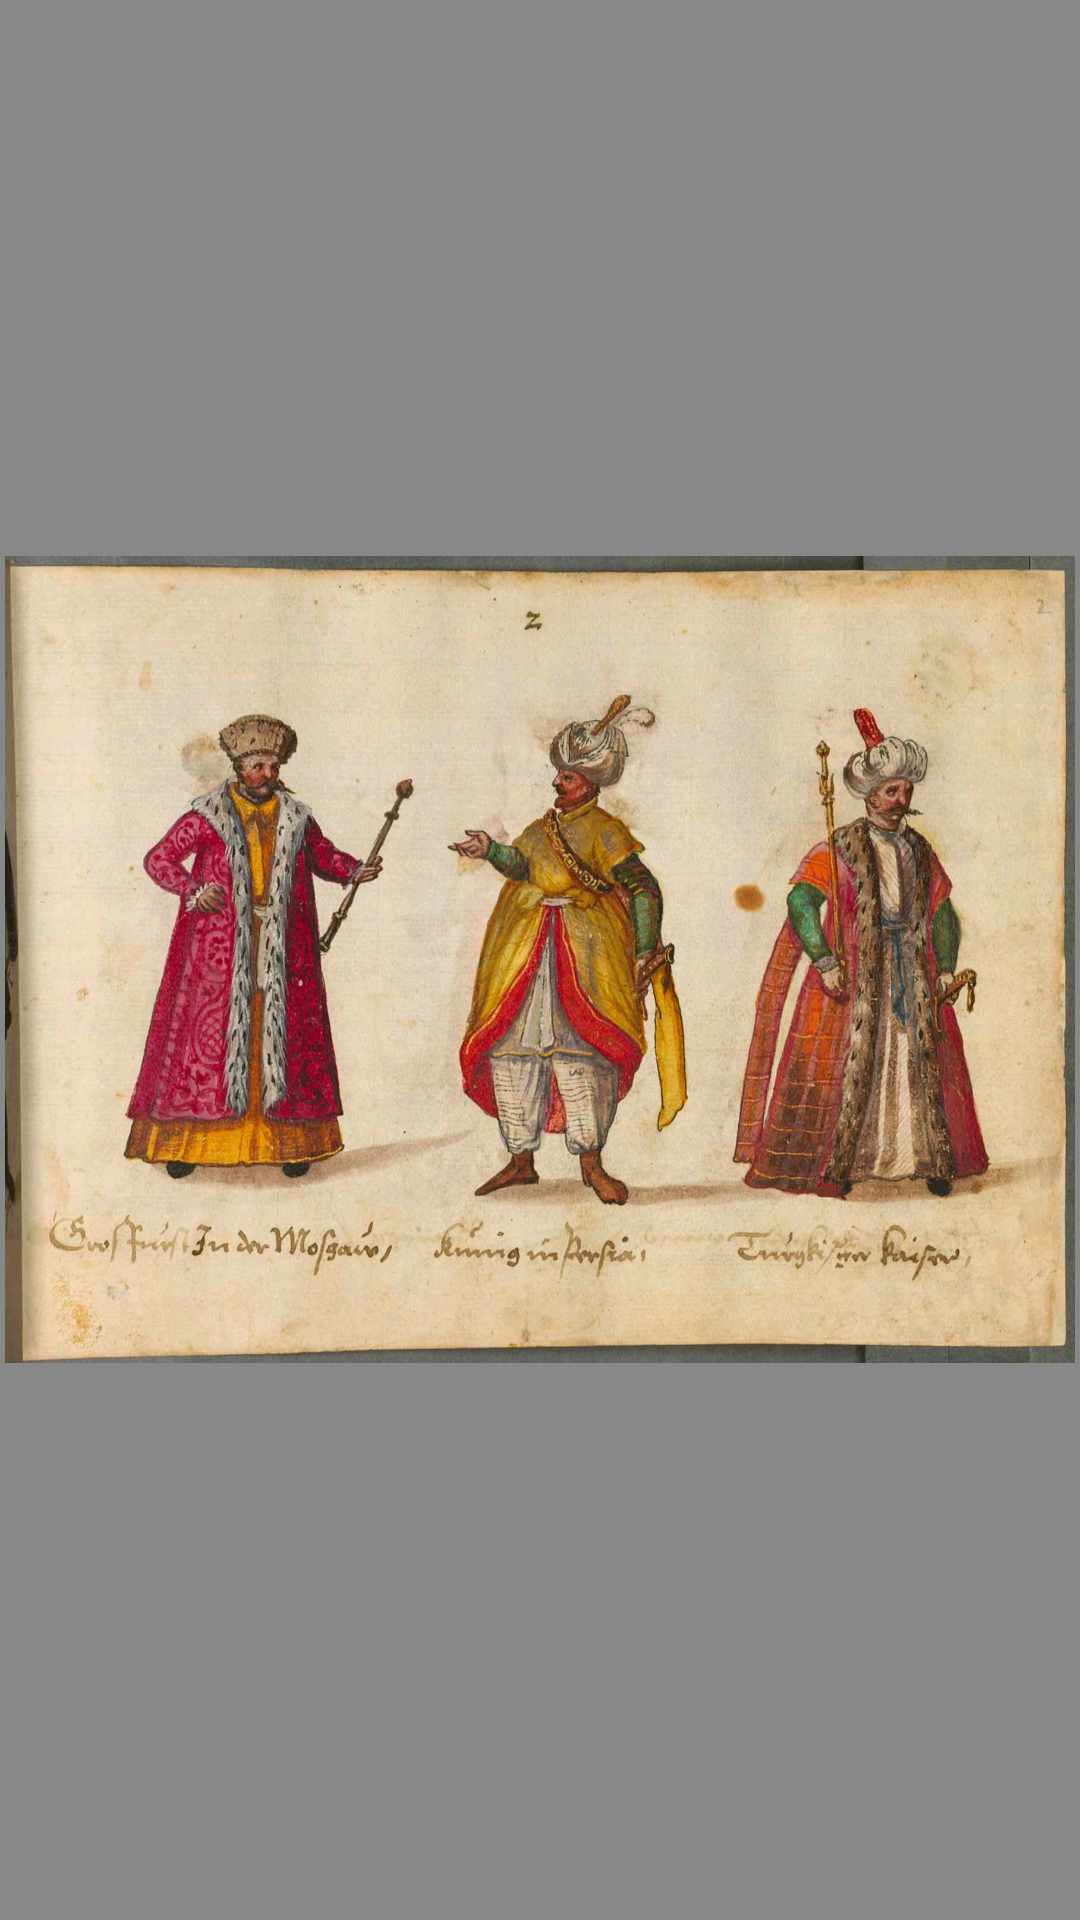 2
2
Grosfürst In der Moscaw,
Künig in Persia,
Türgkischer Kaiser,